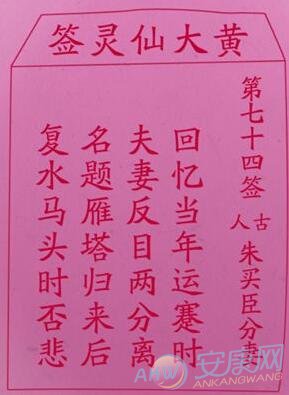 黄大仙灵签
第七十四签
古人 朱买臣分妻
回忆当年运蹇时
夫妻反目两分离
名题雁塔归来后
复水马头时否悲
安康网
ANKANGWANG